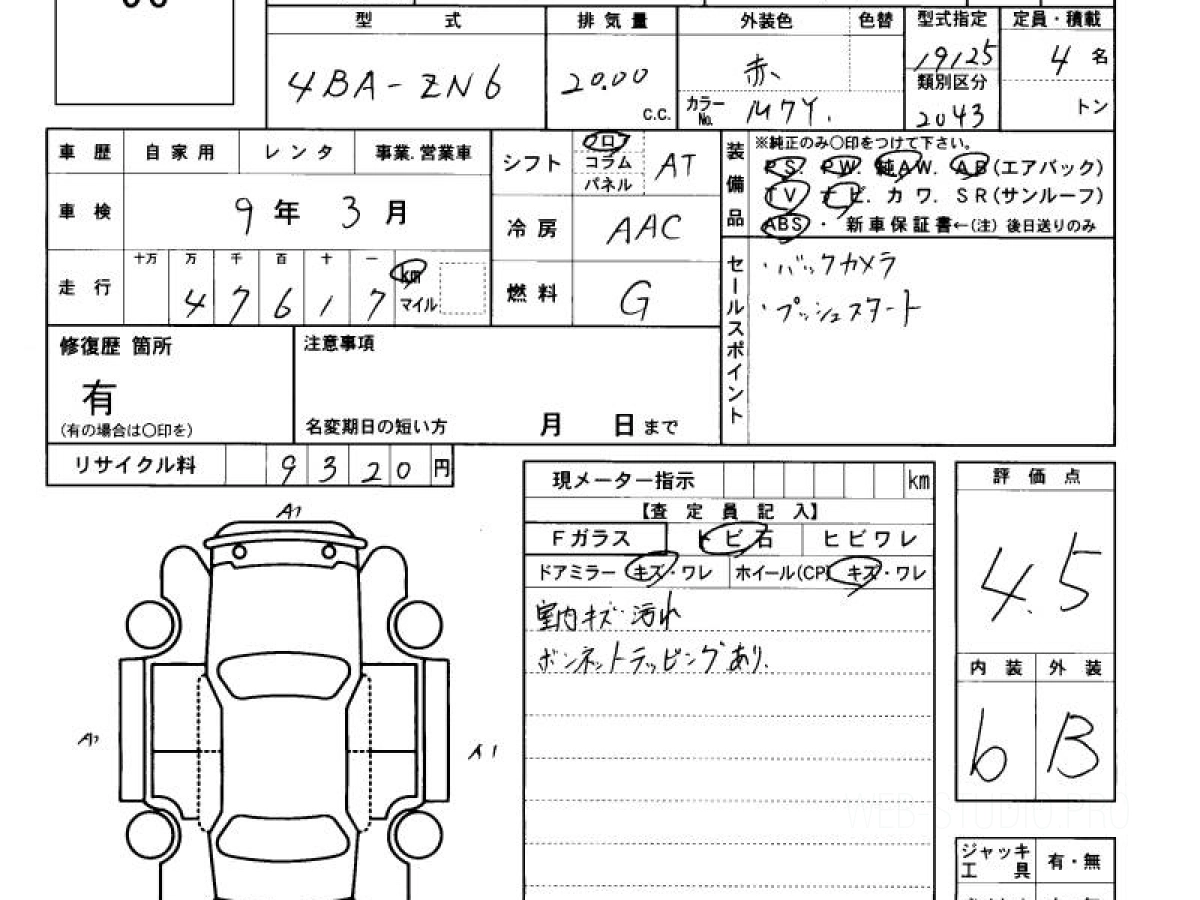 型 式 排気量 外装色 色替 型式指定 定員・積載
4BA-ZN6 20.00 c.c. 赤 19125 4 名
カラーNo. M7Y. 類別区分 2043 トン
車歴 自家用 レンタ 事業.営業車
車検 9年 3月
走行 十万 万 千 百 十 一
4 7 6 1 7 km マイル
シフト フロ コラム パネル AT
冷房 AAC
燃料 G
装備品 ※純正のみ〇印をつけて下さい。
PS. PW. 純AW. AB(エアバック)
TV ナビ. カワ. SR(サンルーフ)
ABS・ 新車保証書←(注) 後日送りのみ
セールスポイント
・バックカメラ
・プッシュスタート
修復歴 箇所
有
(有の場合は〇印を)
注意事項
名変期日の短い方 月 日まで
リサイクル料 9 3 2 0 円
現メーター指示 km
【査定員記入】
Fガラス トビ石 ヒビワレ
ドアミラー キズ・ワレ ホイール(CP) キズ・ワレ
室内キズ・汚れ
ボンネットラッピングあり.
評価点
4.5
内装 外装
b B
A1
A1
A1
ジャッキ 有・無
工具
WEB-STUDIO.PRO